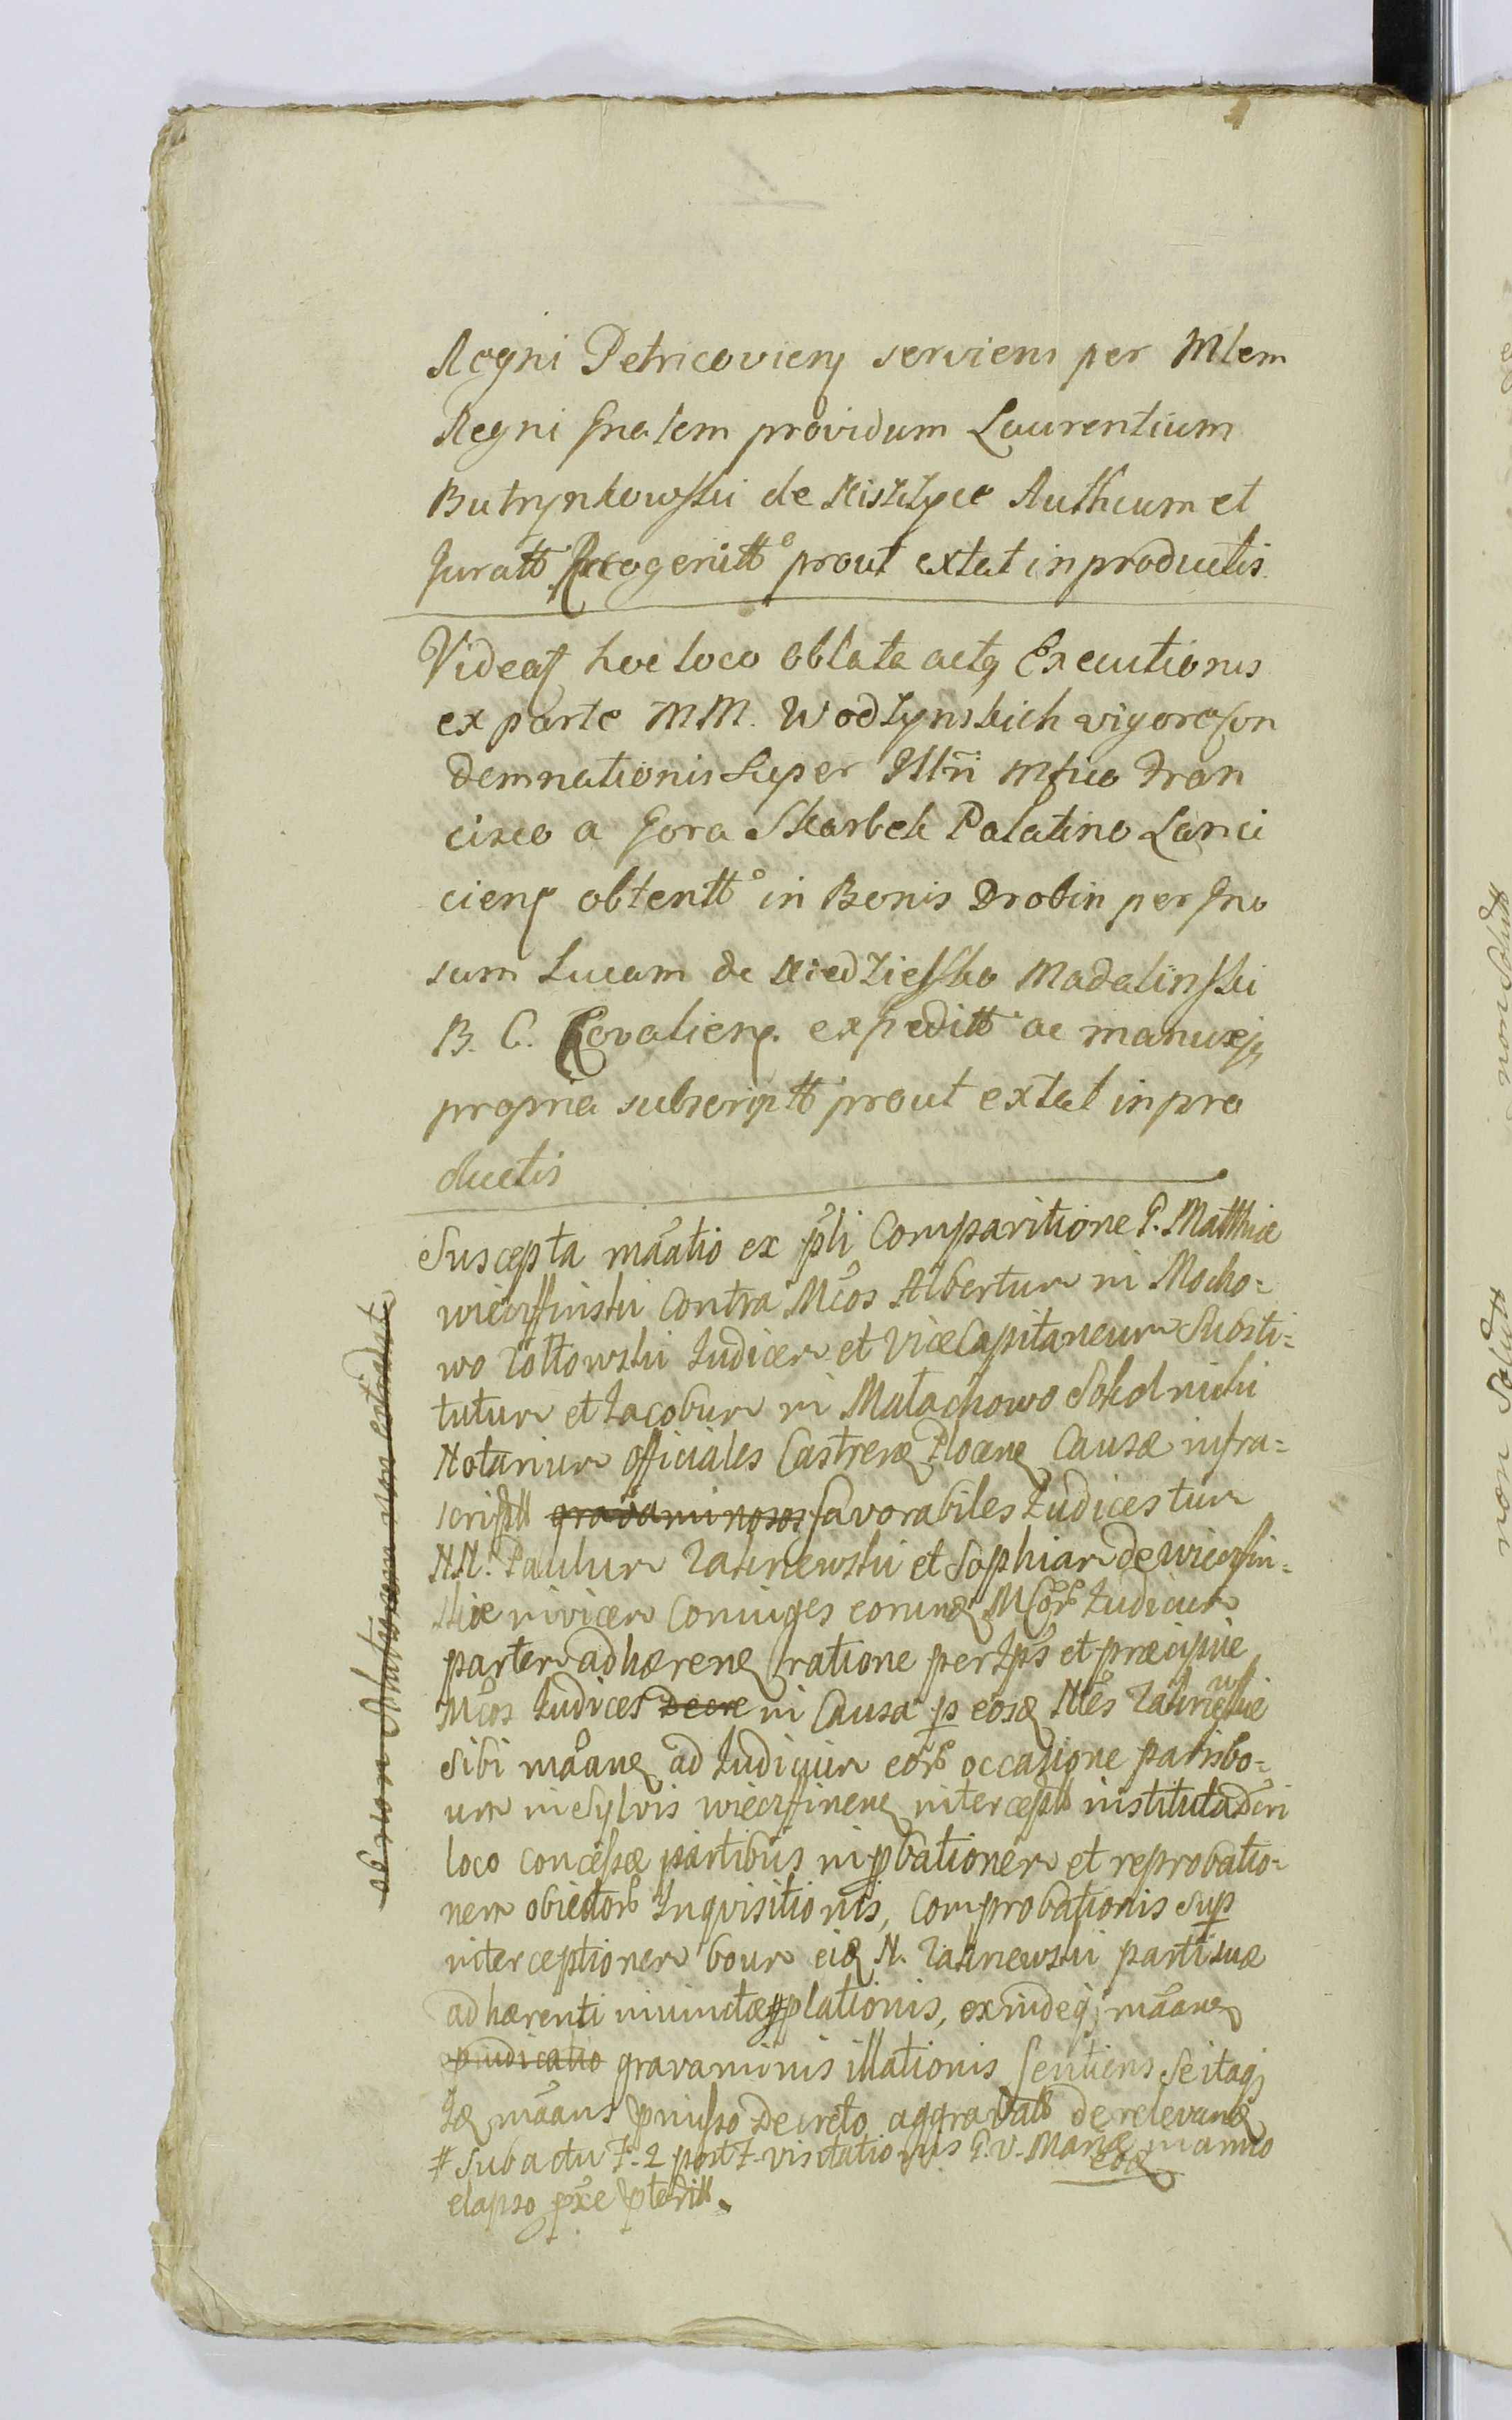 Regni Petricovien serviens per Mlem
Regni Gnalem providum Laurentium
Butrynkowski de Kisielyce Authcum et
Juratt Recogenitt prout extat in productis.
Videat hoc loco Oblata actq Executionis
ex parte MM. Wodzynskich vigore Con
demnationis Super Illri Mfico Fran
cisco a Gora Skarbek Palatino Lanci
cien obtentt in Bonis Drobin per Gno
sum Lucam de Niedzielsko Madalinski
B. C. Covalien expeditt ac manu ejq
propria subscriptt prout extat in pro
ductis
Suscepta mãatio ex pli Comparitione G. Matthiæ
wieczffinski Contra Mcos Albertum in Mocho=
wo Zoltowski Judicem et ViceCapitaneum Substi=
tutum et Jacobum in Malachowo Sokolnicki
Notarium Officiales Castren Plocen Causæ infra=
scriptt gravaminosos favorabiles Judices tum
NN. Paulum Zalinewski et Sophiam de wieczfin=
skie invicem Coniuges eorunq MCor Judicum
partem adhæren ratione per Ips et præcipue
Mcos Judices Decre in Causa p eosq Nles Zalinewskie
sibi mãan ad Judicium eor occasione paris bo=
um in Sylvis wieczffinen intercept instituta Dcri
loco concessæ partibus in pbationem et reprobatio=
nem obiector Inqvisitionis, Comprobationis Sup
interceptionem boum eiq N. Zalinewski parti suæ
adhærenti iniunctæ # plationis, exindeq mãan
piudicatio gravaminis illationis sentiens Se itaq
Iq mãans pmisso Decreto aggravatt de relevanq
# Sub actu F. 2 post F. visitationis G. V. Mariæ in anno
eosq
elapso pxe pterit.